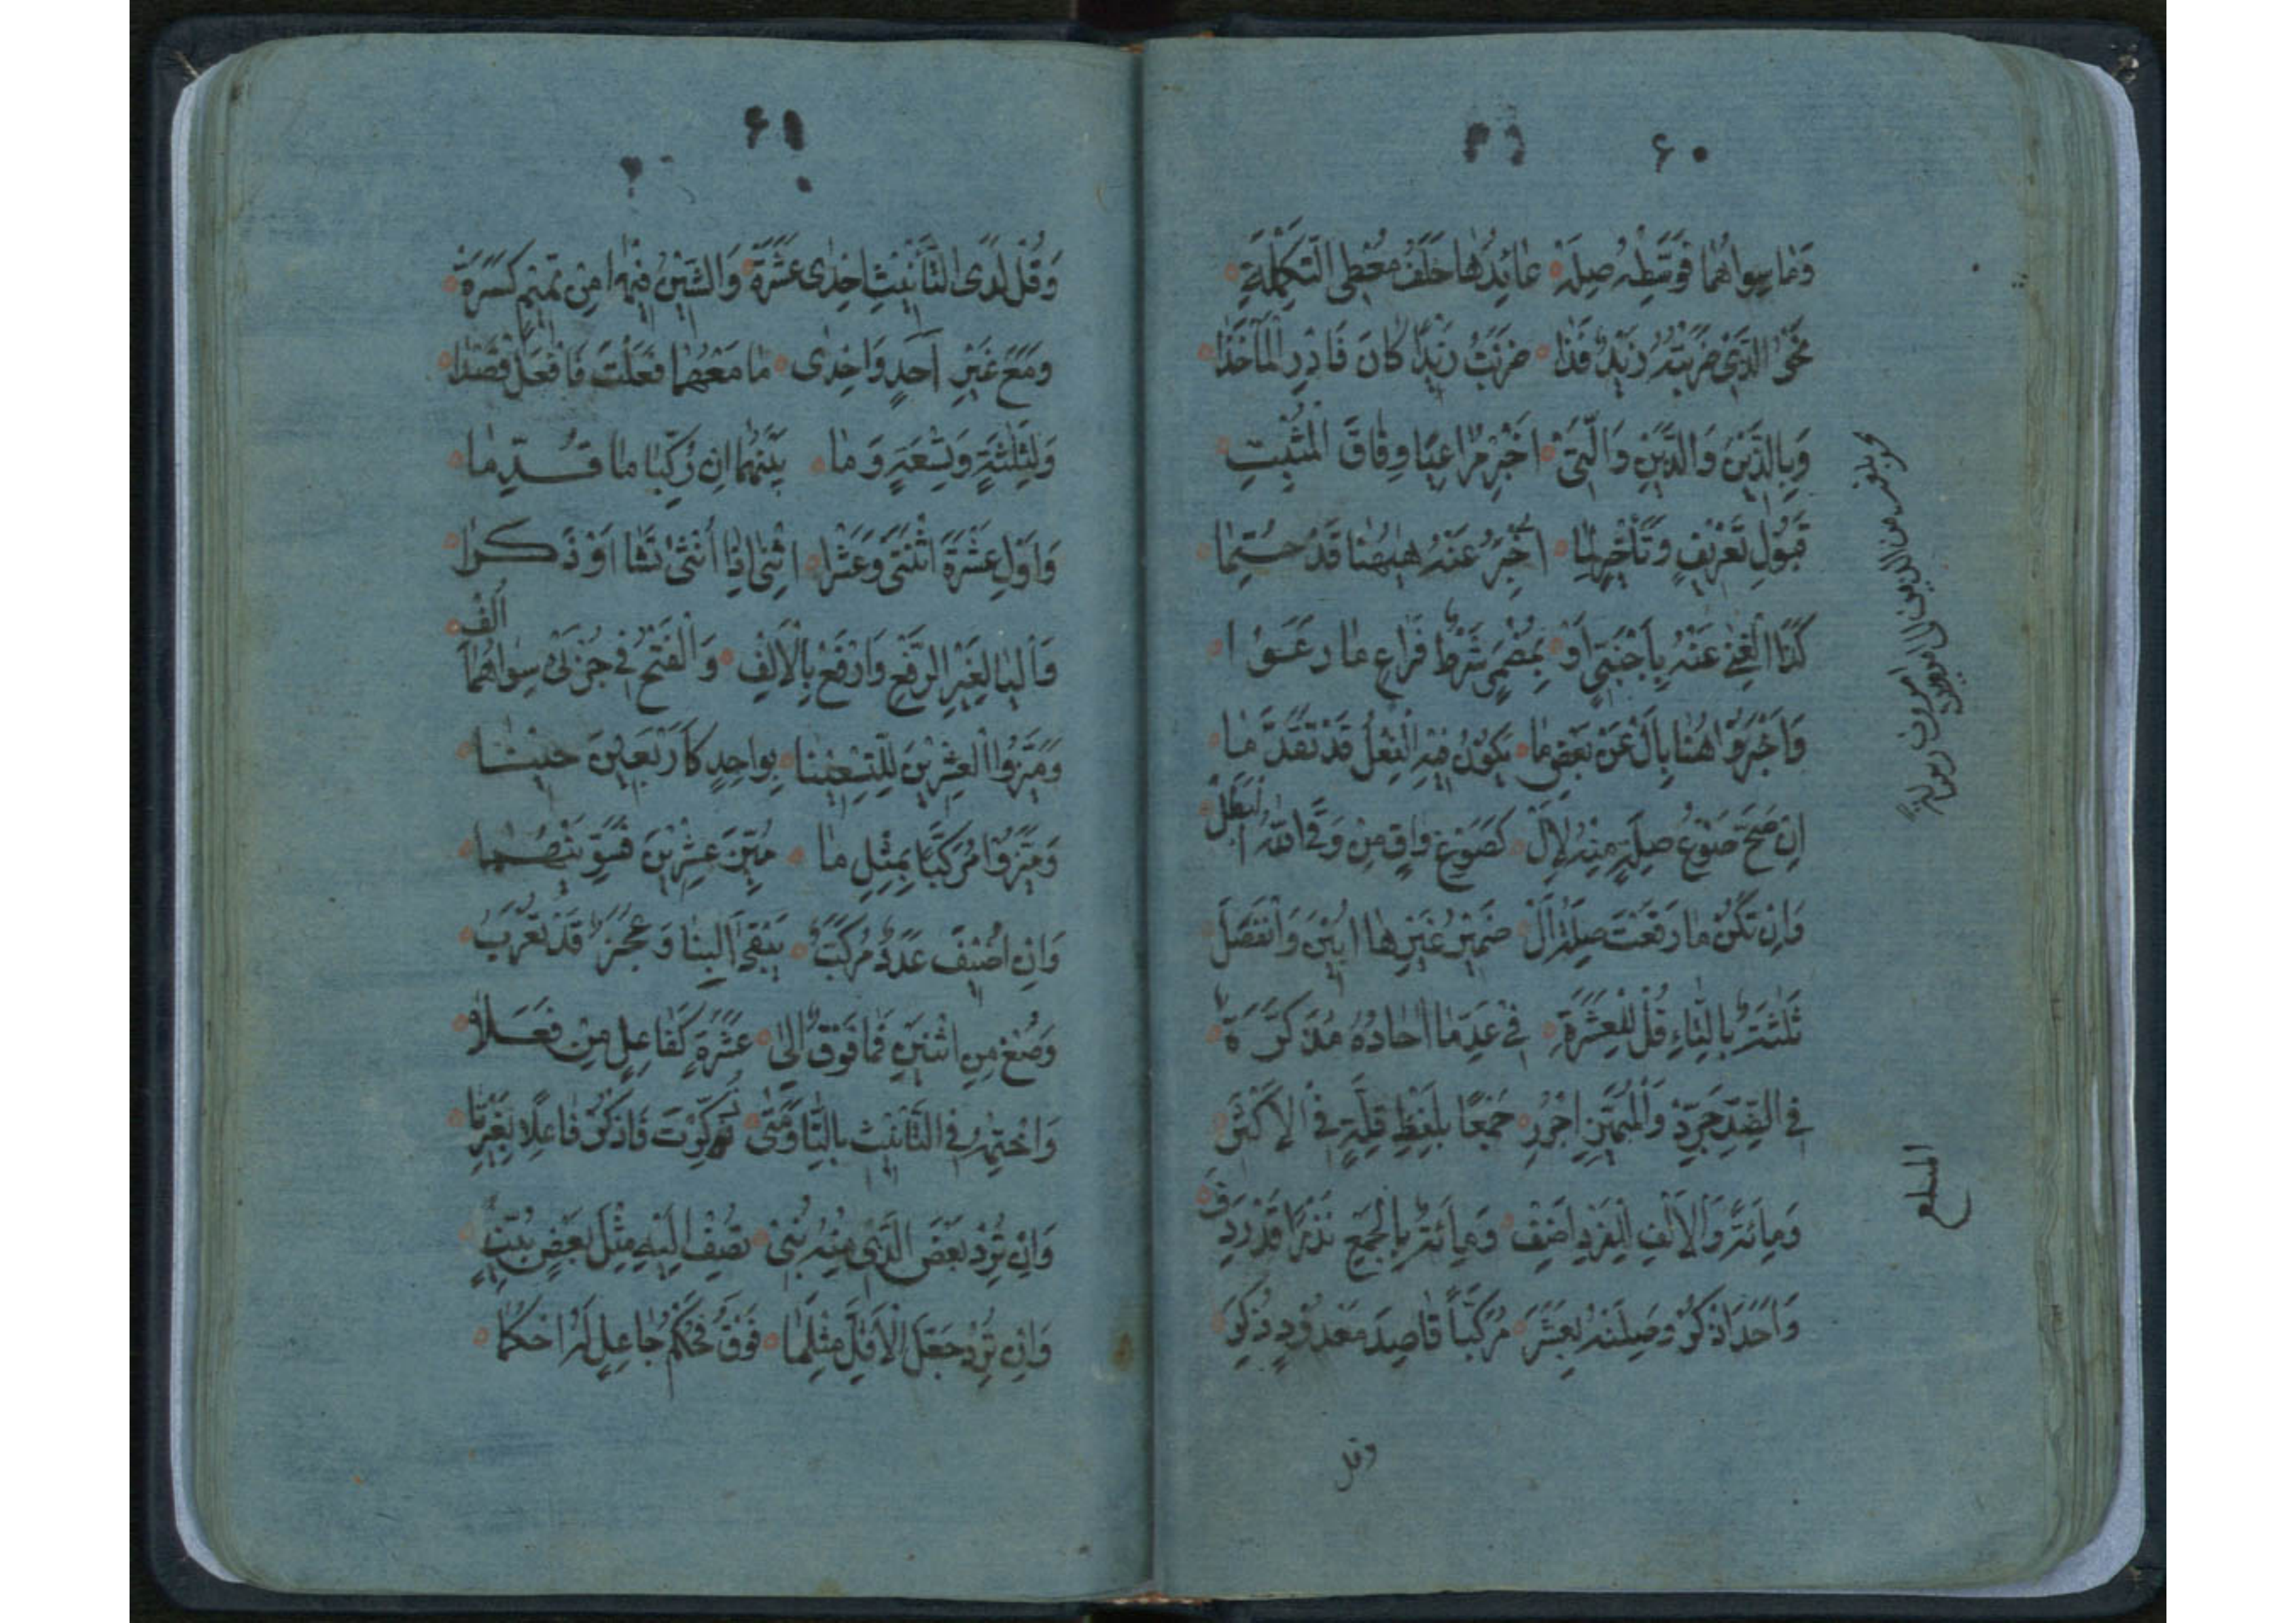 ۶۰
وَمَا سِوَاهُمَا فَوَسِّطْهُ صِلَهْ عَائِدُهَا خَلَفُ مُعْطِي التَّكْمِلَةِ
نَحْوُ الَّذِي ضَرَبْتُهُ زَيْدٌ فَذَا ضَرَبْتُ زَيْدًا كَانَ فَادْرِ الْمَأْخَذَا
وَبِالَّذَيْنِ وَالَّذِينَ وَالَّتِي أَخْبِرْ مُرَاعِيًا وِفَاقَ الْمُثْبَتِ
قَبُولُ تَعْرِيفٍ وَتَأْخِيرٍ لِمَا أُخْبِرَ عَنْهُ هٰهُنَا قَدْ حُتِمَا
كَذَا الْغِنَى عَنْهُ بِأَجْنَبِيٍّ أَوْ بِمُضْمَرٍ شَرْطٌ فَرَاعِ مَا رَعَوْا
وَأَخْبَرُوا هُنَا بِأَلْ عَنْ بَعْضِ مَا يَكُونُ فِيهِ الْفِعْلُ قَدْ تَقَدَّمَا
إِنْ صَحَّ صَوْغُ صِلَةٍ مِنْهُ لِأَلْ كَصَوْغِ وَاقٍ مِنْ وَقَى اللّٰهُ الْبَطَلْ
وَإِنْ تَكُنْ مَا رَفَعَتْ صِلَةُ أَلْ ضَمِيرَ غَيْرِهَا أُبِينَ وَانْفَصَلَ
ثَلٰثَةٌ بِالتَّاءِ قُلْ لِلْعَشَرَةِ فِي عَدِّ مَا آحَادُهُ مُذَكَّرَةٌ
فِي الضِّدِّ جَرِّدْ وَالْمُمَيِّزَ اجْرُرِ جَمْعًا بِلَفْظِ قِلَّةٍ فِي الْأَكْثَرِ
وَمِائَةً وَالْأَلْفَ لِلْفَرْدِ أَضِفْ وَمِائَةٌ بِالْجَمْعِ نَذْرًا قَدْ رُدِفْ
وَأَحَدَ اذْكُرْ وَصِلَنْهُ بِعَشَرَ مُرَكَّبًا قَاصِدَ مَعْدُودٍ ذُكِرَ
وقل
۶۱
وَقُلْ لَدَى التَّأْنِيثِ إِحْدَى عَشْرَةَ وَالشِّينُ فِيهَا مِنْ تَمِيمٍ كَسْرَةٌ
وَمَعَ غَيْرِ أَحَدٍ وَإِحْدَى مَا مَعْهُمَا فَعَلْتَ فَافْعَلْ قَصْدَا
وَلِثَلٰثَةٍ وَتِسْعَةٍ وَمَا بَيْنَهُمَا إِنْ رُكِّبَا مَا قُدِّمَا
وَأَوْلِ عَشْرَةَ اثْنَتَيْ وَعَشَرَا اثْنَيْ إِذَا أُنْثَى تَشَا أَوْ ذَكَرَا
وَالْيَا لِغَيْرِ الرَّفْعِ وَارْفَعْ بِالْأَلِفْ وَالْفَتْحُ فِي جُزْئَيْ سِوَاهُمَا أُلِفْ
وَمَيَّزُوا الْعِشْرِينَ لِلتِّسْعِينَا بِوَاحِدٍ كَأَرْبَعِينَ حِينًا
وَمَيَّزُوا مُرَكَّبًا بِمِثْلِ مَا مُيِّزَ عِشْرِينَ فَسَوِّيَنْهُمَا
وَإِنْ أُضِيفَ عَدَدٌ مُرَكَّبٌ يَبْقَى الْبِنَا وَعَجُزٌ قَدْ تُعْرَبُ
وَصُغْ مِنِ اثْنَيْنِ فَمَا فَوْقُ إِلَى عَشَرَةٍ كَفَاعِلٍ مِنْ فَعَلَا
وَاخْتِمْهُ فِي التَّأْنِيثِ بِالتَّا وَمَتَى ذَكَّرْتَ فَاذْكُرْ فَاعِلًا بِغَيْرِ تَا
وَإِنْ تُرِدْ بَعْضَ الَّذِي مِنْهُ بُنِيَ تُضِفْ إِلَيْهِ مِثْلَ بَعْضٍ بَيِّنٍ
وَإِنْ تُرِدْ جَعْلَ الْأَقَلِّ مِثْلَ مَا فَوْقُ فَحُكْمَ جَاعِلٍ لَهُ احْكُمَا